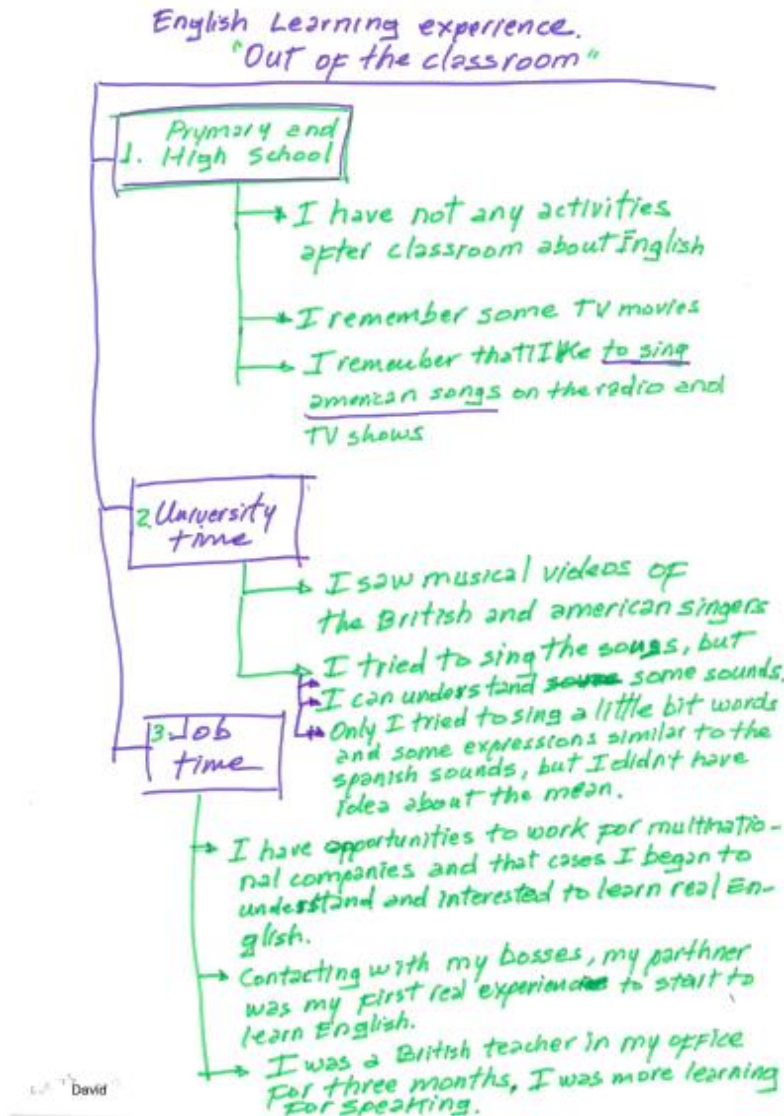 English Learning experience.
"Out of the classroom"
1. Prymary and
High School
I have not any activities
after classroom about Inglish
I remember some TV movies
I remember that I like to sing
american songs on the radio and
TV shows
2. University
time
I saw musical videos of
the British and american singers
I tried to sing the songs, but
I can understand some sounds,
Only I tried to sing a little bit words
and some expressions similar to the
spanish sounds, but I didn't have
idea about the mean.
3. Job
time
I have opportunities to work for multinatio-
nal companies and that cases I began to
understand and interested to learn real En-
glish.
Contacting with my bosses, my parthner
was my first real experience to start to
learn English.
I was a British teacher in my office
For three months, I was more learning
For speaking.
David